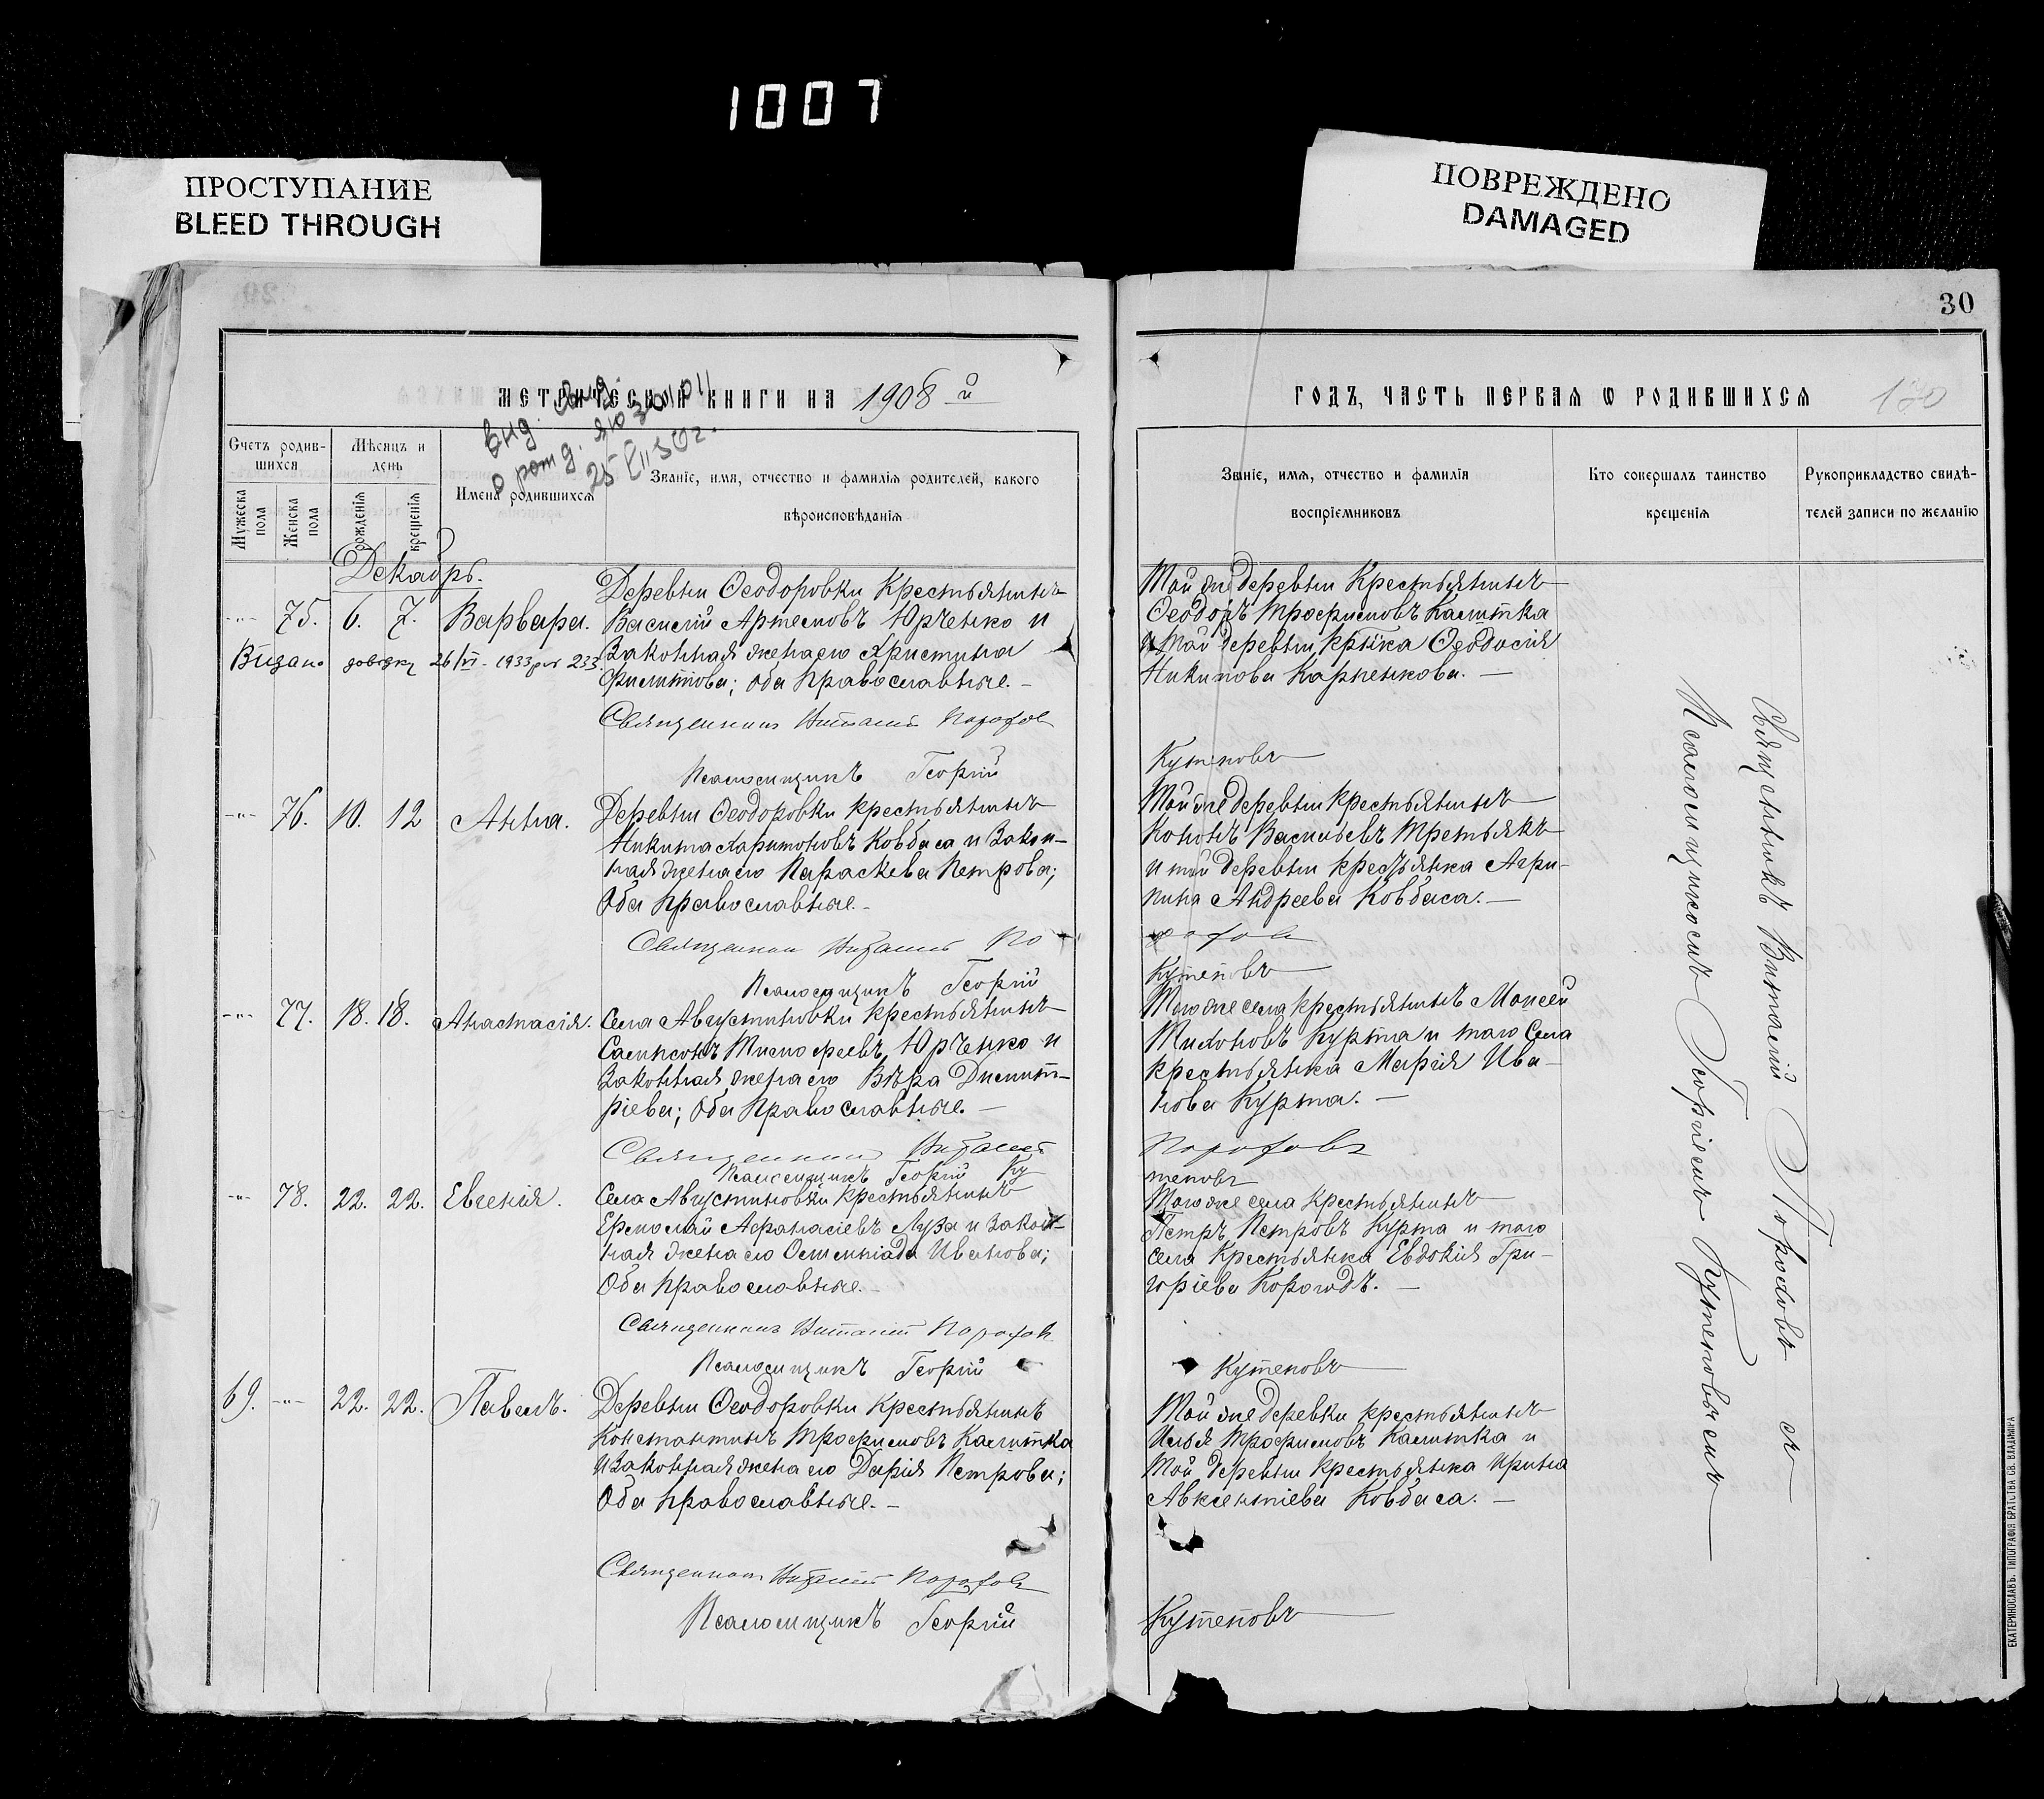 1007
ПРОСТУПАНИЕ
BLEED THROUGH
ПОВРЕЖДЕНО
DAMAGED
30
МЕТРИЧЕСКОЙ КНИГИ НА 1908 й
вид. свид.
о рожд.
Счетъ родив-
шихся
Мѣсяцъ и
день
Мужеска пола
Женска пола
рожденія
крещенія
Имена родившихся
Званіе, имя, отчество и фамилія родителей, какого
вѣроисповѣданія
Декабрь.
-"- 75. 6. 7. Варвара.
Деревни Ѳеодоровки крестьянинъ
Василій Артемовъ Юрченко и
законная жена его Христина
Филиппова; оба православные. –
Видано довідку 26/VI - 1933 р. № 233
Священникъ Виталій Порохов
Псаломщикъ Георгій
-"- 76. 10. 12 Анна.
Деревни Ѳеодоровки крестьянинъ
Никита Харитоновъ Ковбаса и закон-
ная жена его Параскева Петрова;
Оба православные. –
Священник Виталий По
Псаломщикъ Георгій
-"- 77. 18. 18. Анастасія.
Села Августиновки крестьянинъ
Сампсонъ Тимофеевъ Юрченко и
законная жена его Вѣра Димит-
ріева; Оба Православные. –
Священник Виталий
Псаломщикъ Георгій Ку
-"- 78. 22. 22. Евгенія.
Села Августиновки крестьянинъ
Ермолай Афанасіевъ Луза и закон-
ная жена его Олимпіада Иванова;
Оба православные. –
Священникъ Виталий Порохов
Псаломщикъ Георгій
69. -"- 22. 22. Павелъ.
Деревни Ѳеодоровки крестьянинъ
Константинъ Трофимовъ Калитка
и законная жена его Дарія Петрова;
Оба православные. –
Священникъ Виталий Порохов
Псаломщикъ Георгій
ГОДЪ, ЧАСТЬ ПЕРВАЯ Ѡ РОДИВШИХСЯ
Званіе, имя, отчество и фамилія
воспріемниковъ
Кто совершалъ таинство
крещенія
Рукоприкладство свидѣ-
телей записи по желанію
Той же деревни крестьянинъ
Ѳеодоръ Трофимовъ Калитка
и той деревни кр-нка Ѳеодосія
Никитова Карпенкова. –
Кутеповъ
Той же деревни крестьянинъ
Кононъ Васильевъ Третьякъ
и той деревни крестьянка Агри-
пина Андреева Ковбаса. –
рохов
Кутеповъ
Того же села крестьянинъ Моисей
Тихоновъ Курта и того села
крестьянка Марія Ива-
нова Курта. –
Пороховъ
теповъ
Того же села крестьянинъ
Петръ Петровъ Курта и того
села крестьянка Евдокія Гри-
горіева Корогодъ. –
Кутеповъ
Той же деревни крестьянинъ
Илья Трофимовъ Калитка и
той деревни крестьянка Ирина
Авксентіева Ковбаса. –
Кутеповъ
Священникъ Виталій Пороховъ съ
Псаломщикомъ Георгіемъ Кутеповымъ
ЕКАТЕРИНОСЛАВЪ. ТИПОГРАФІЯ БРАТСТВА СВ. ВЛАДИМІРА